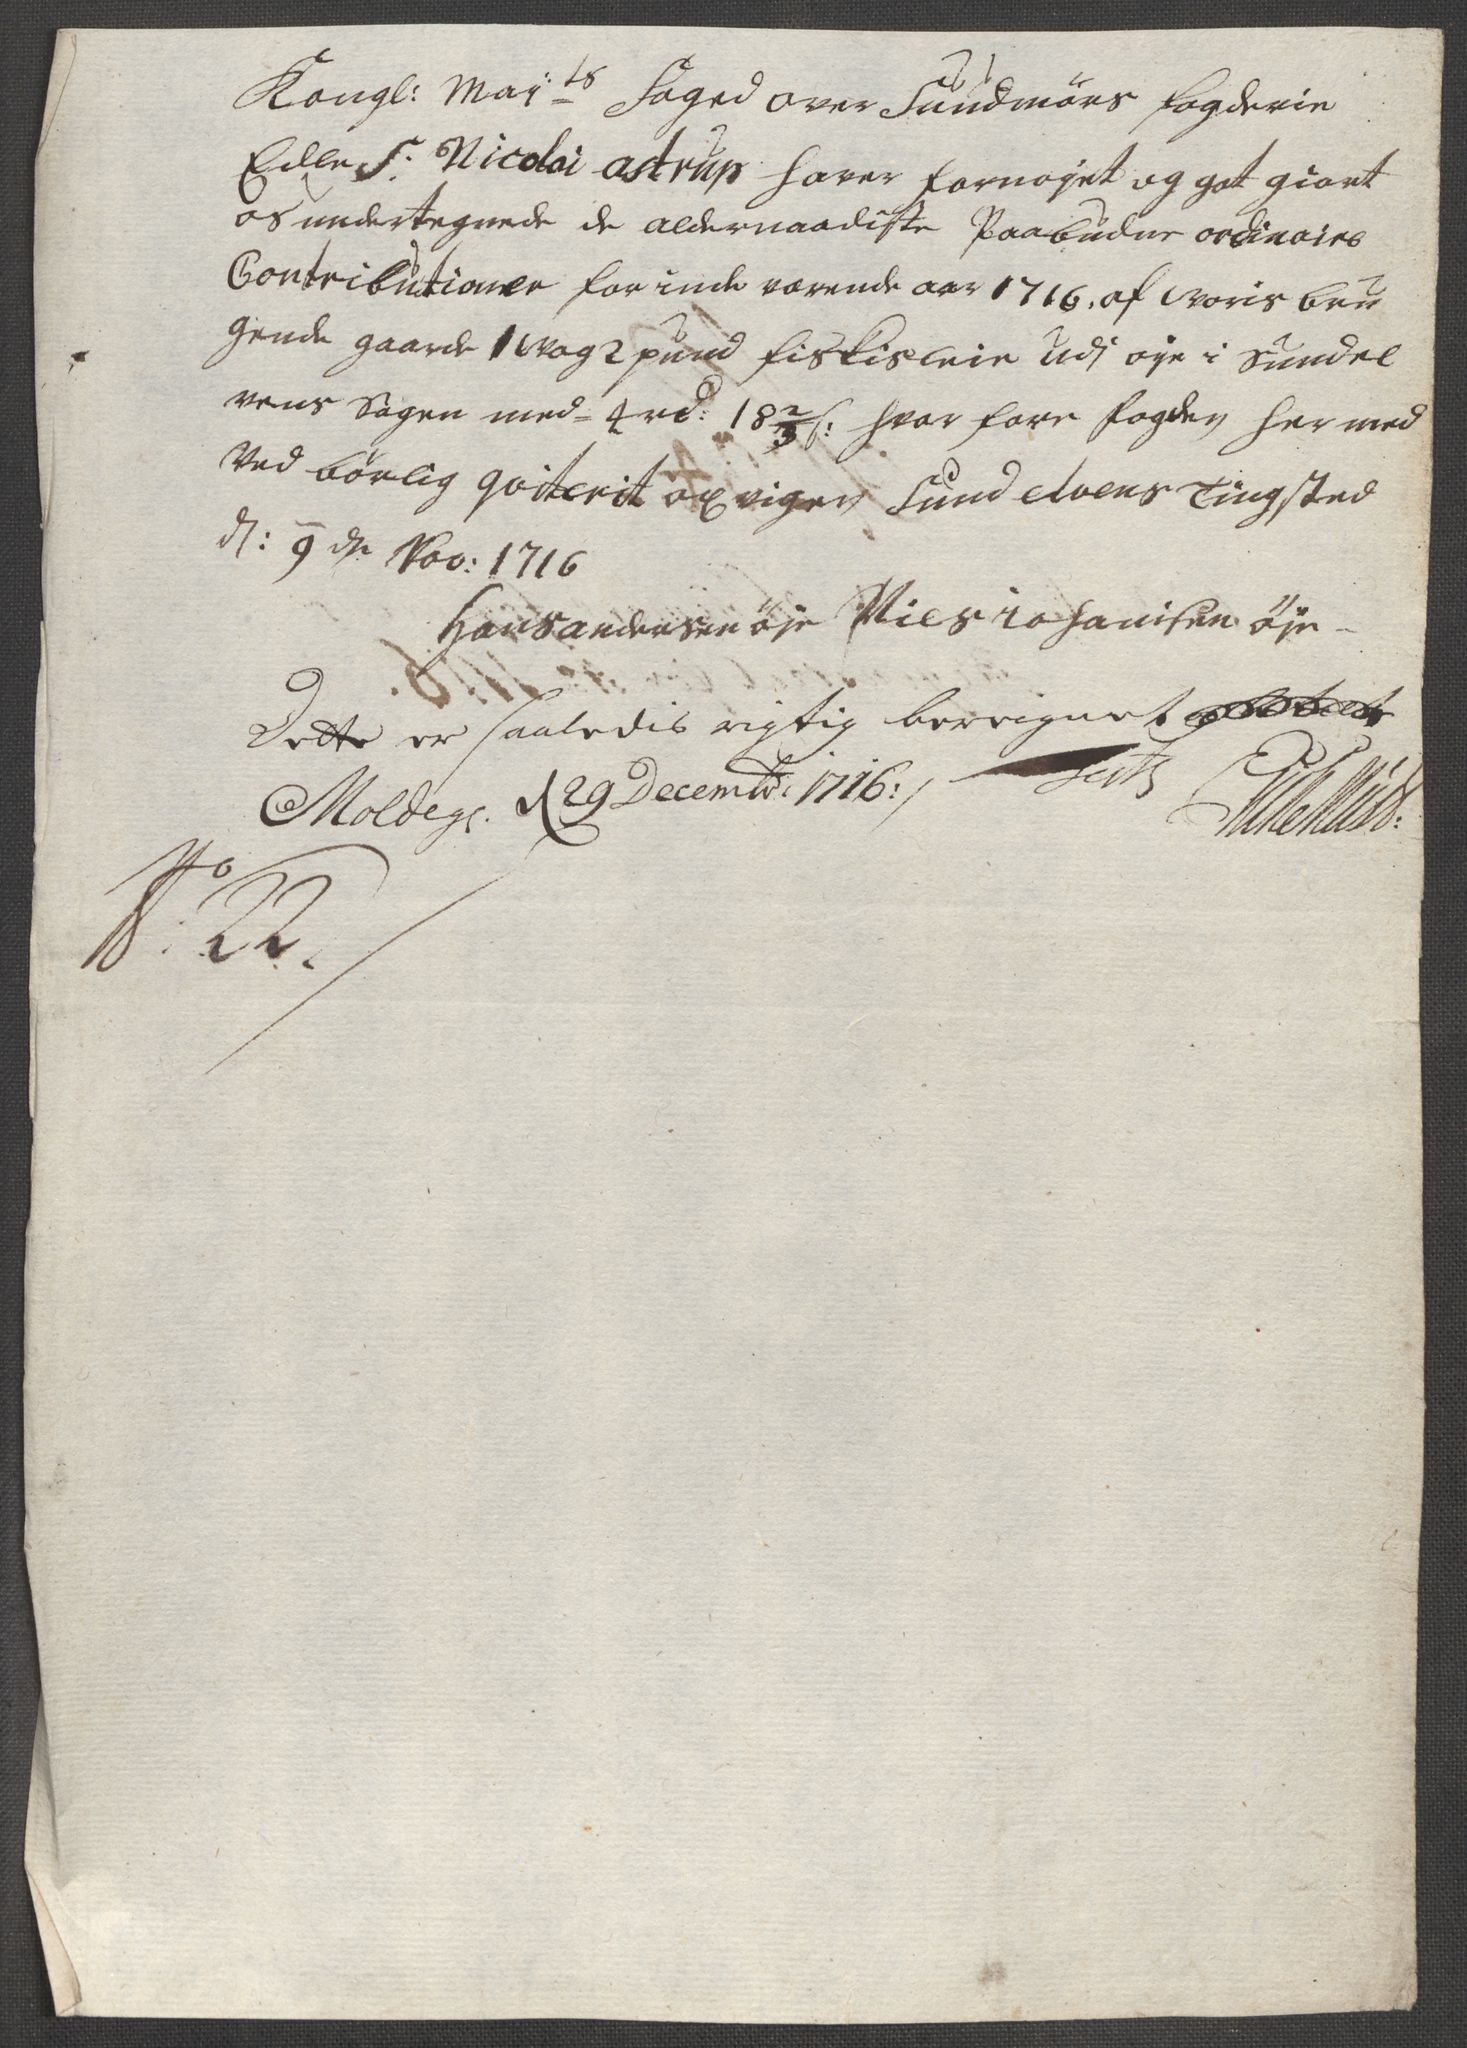 Kongl: May:ts Foged over Sundmørs fogderie
Edle Sr. Nicolai astrup haver fornøyet og got giort
os undertegnede de aldernaadiste Paabudne ordinaire
Contributioner for inde værende aar 1716. af woris bru
gende gaarde 1 Wog 2 pund fiskisleie Udj øje i Sundel
vens Sogen med 4 rd: 18 2/3 s: hvor fore fogden her med
Ved børlig qviterit ørvigen Sund elvens Tingsted
d: 9 de Nov: 1716
Hans andersen øje Niels iohanisen øje
Dette er saaledis rigtig beregnet
Moldegr. d 29 Decembr: 1716:/
No: 22.